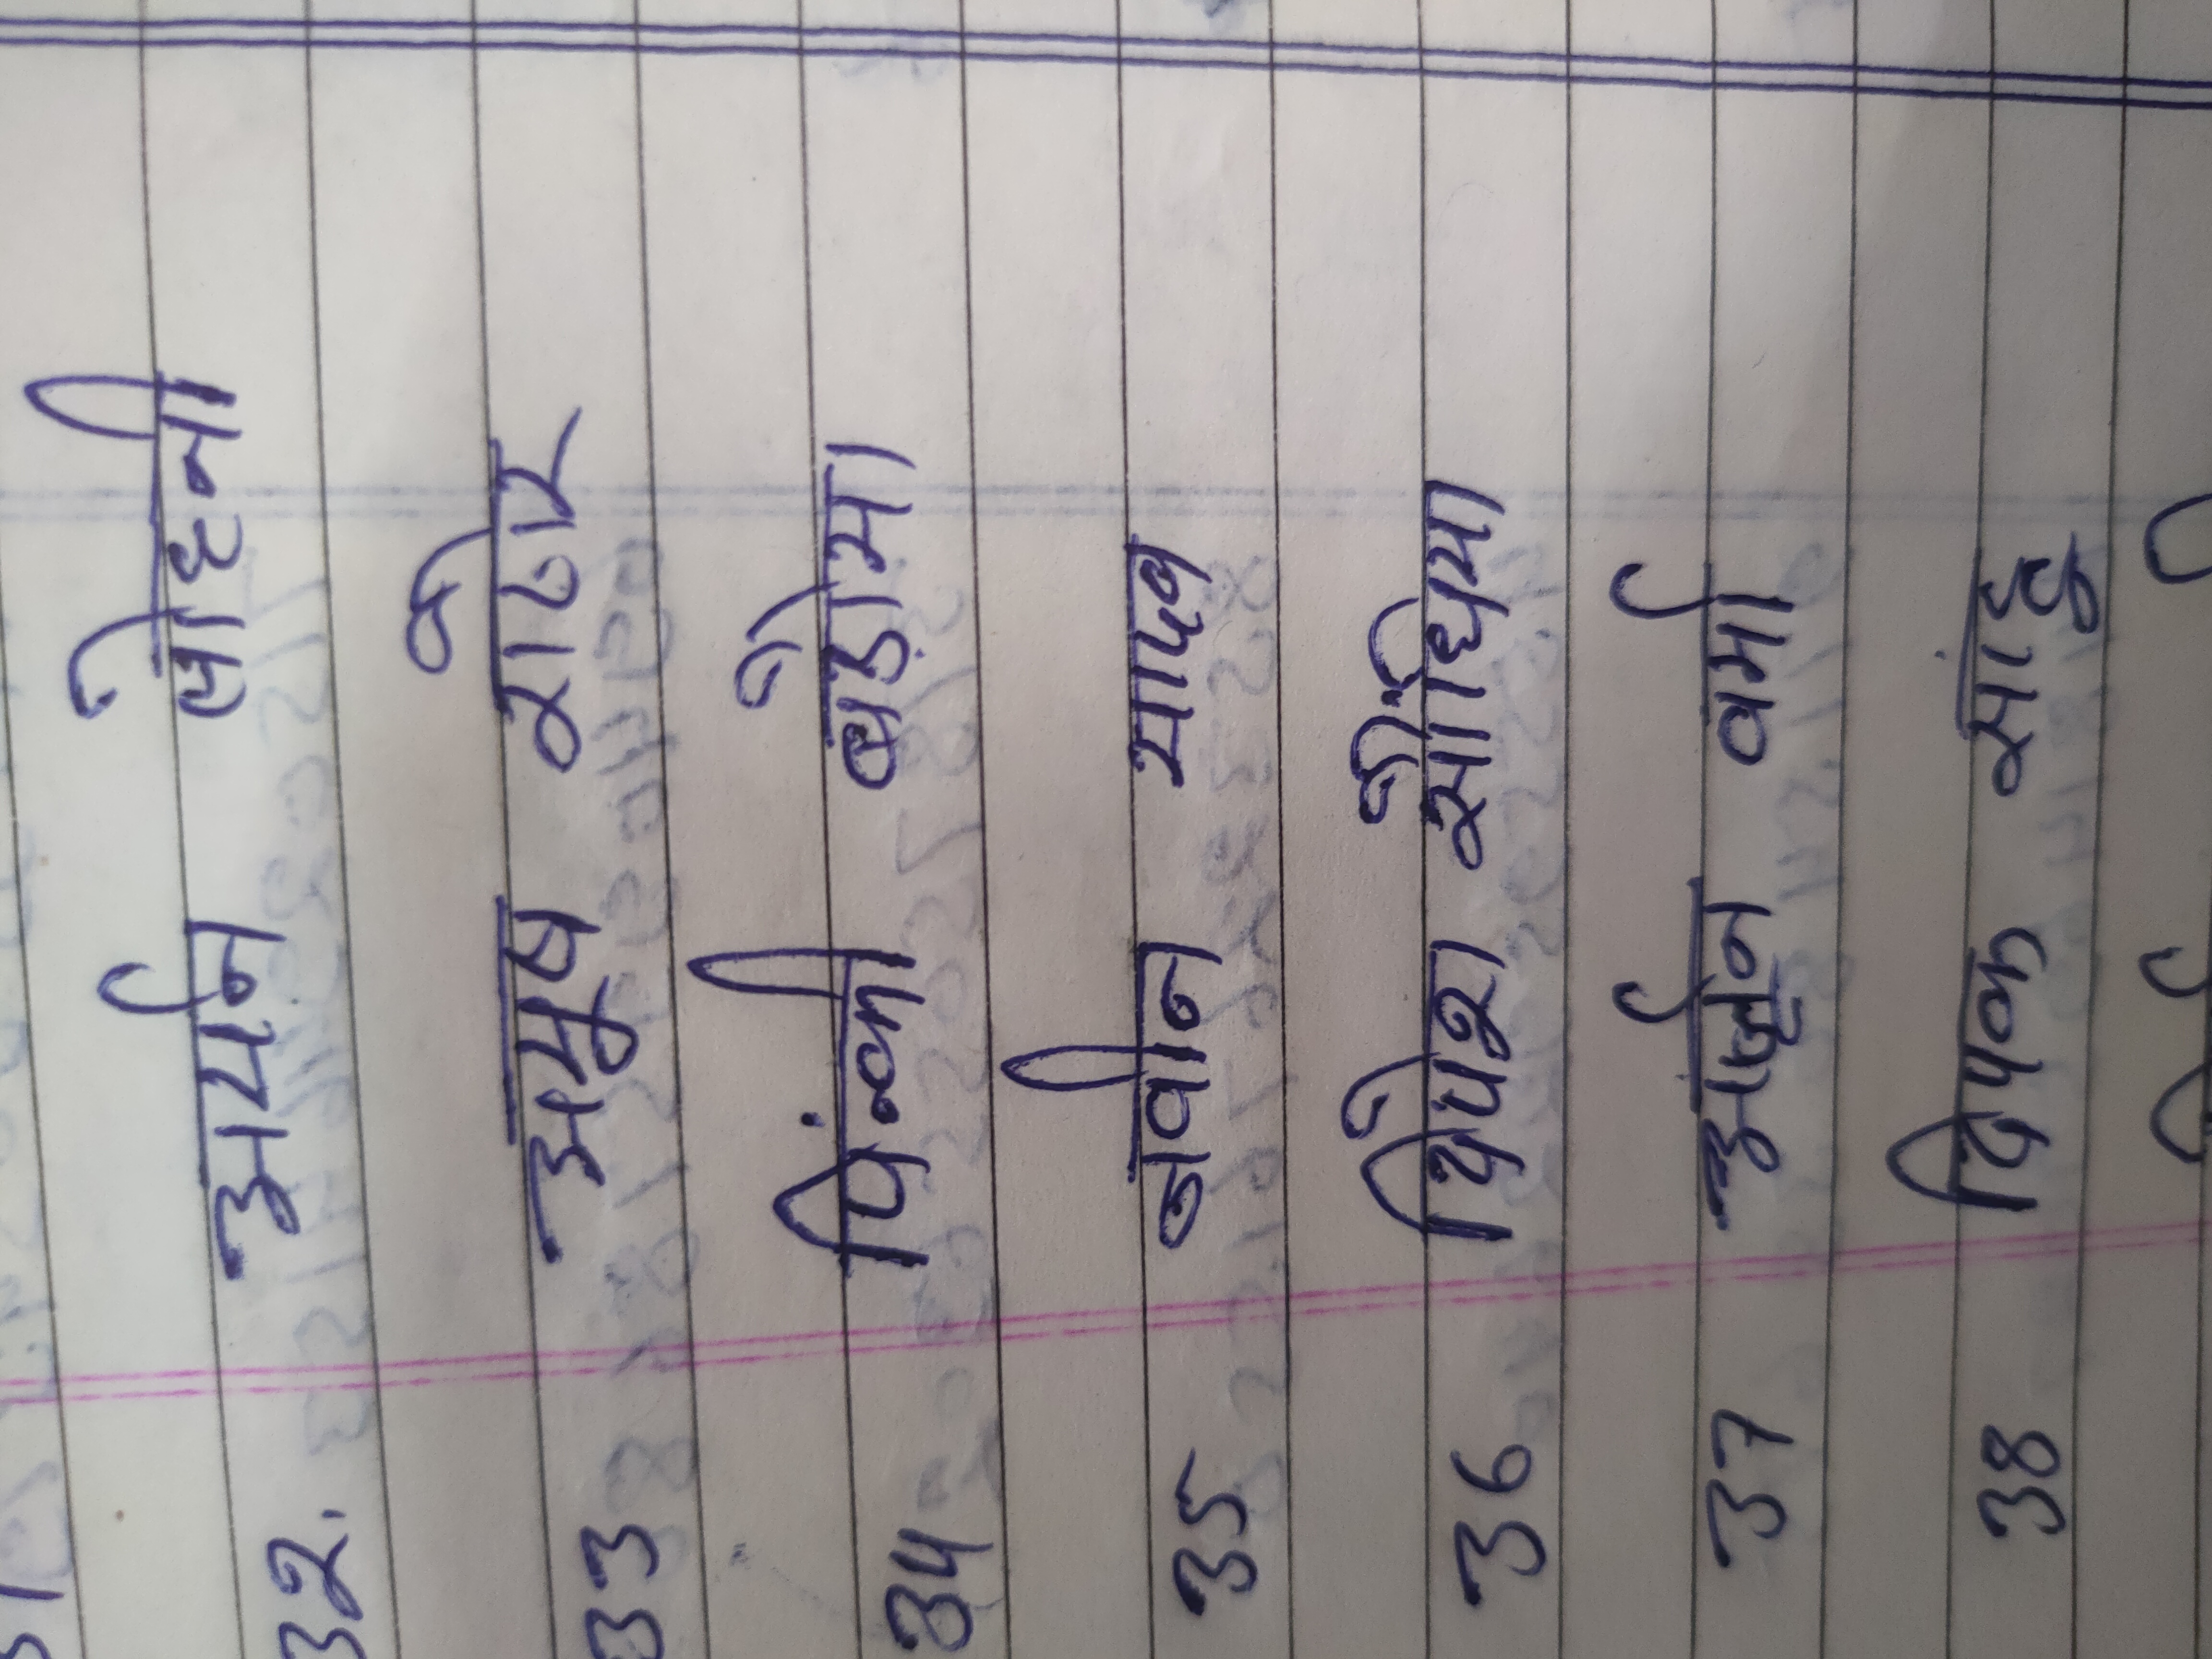 32. अर्यन लोहनी
33 अमूष रोठार
34 पिंन्की बडोमा
35 नवीन यादव
36 दिपेश सोंधिया
37 अर्जून वर्मा
38 दिपक साहू